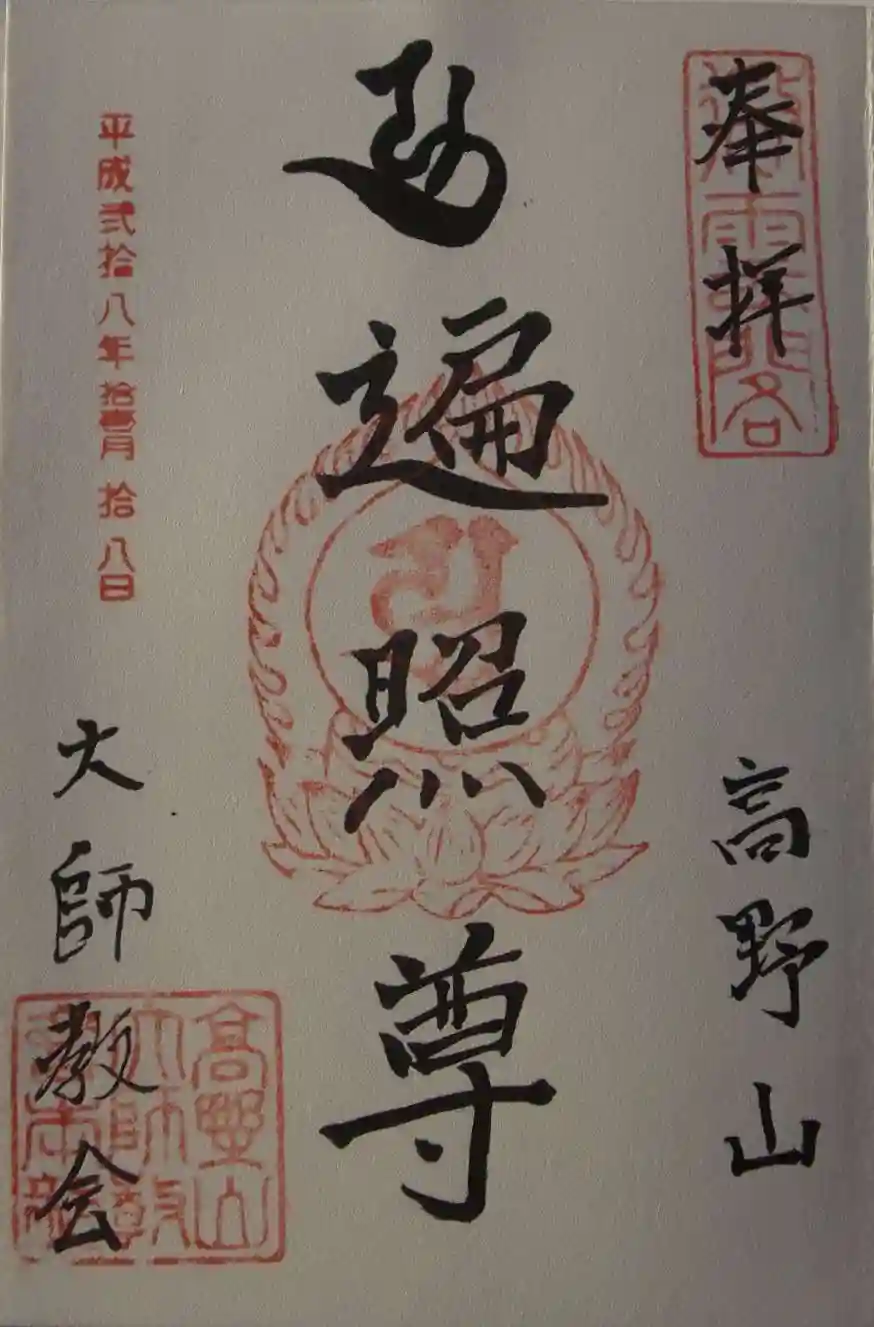 奉拝
高野山
遍照尊
平成弐拾八年拾壹月拾八日
大師教会
高野山
大師教
會本部